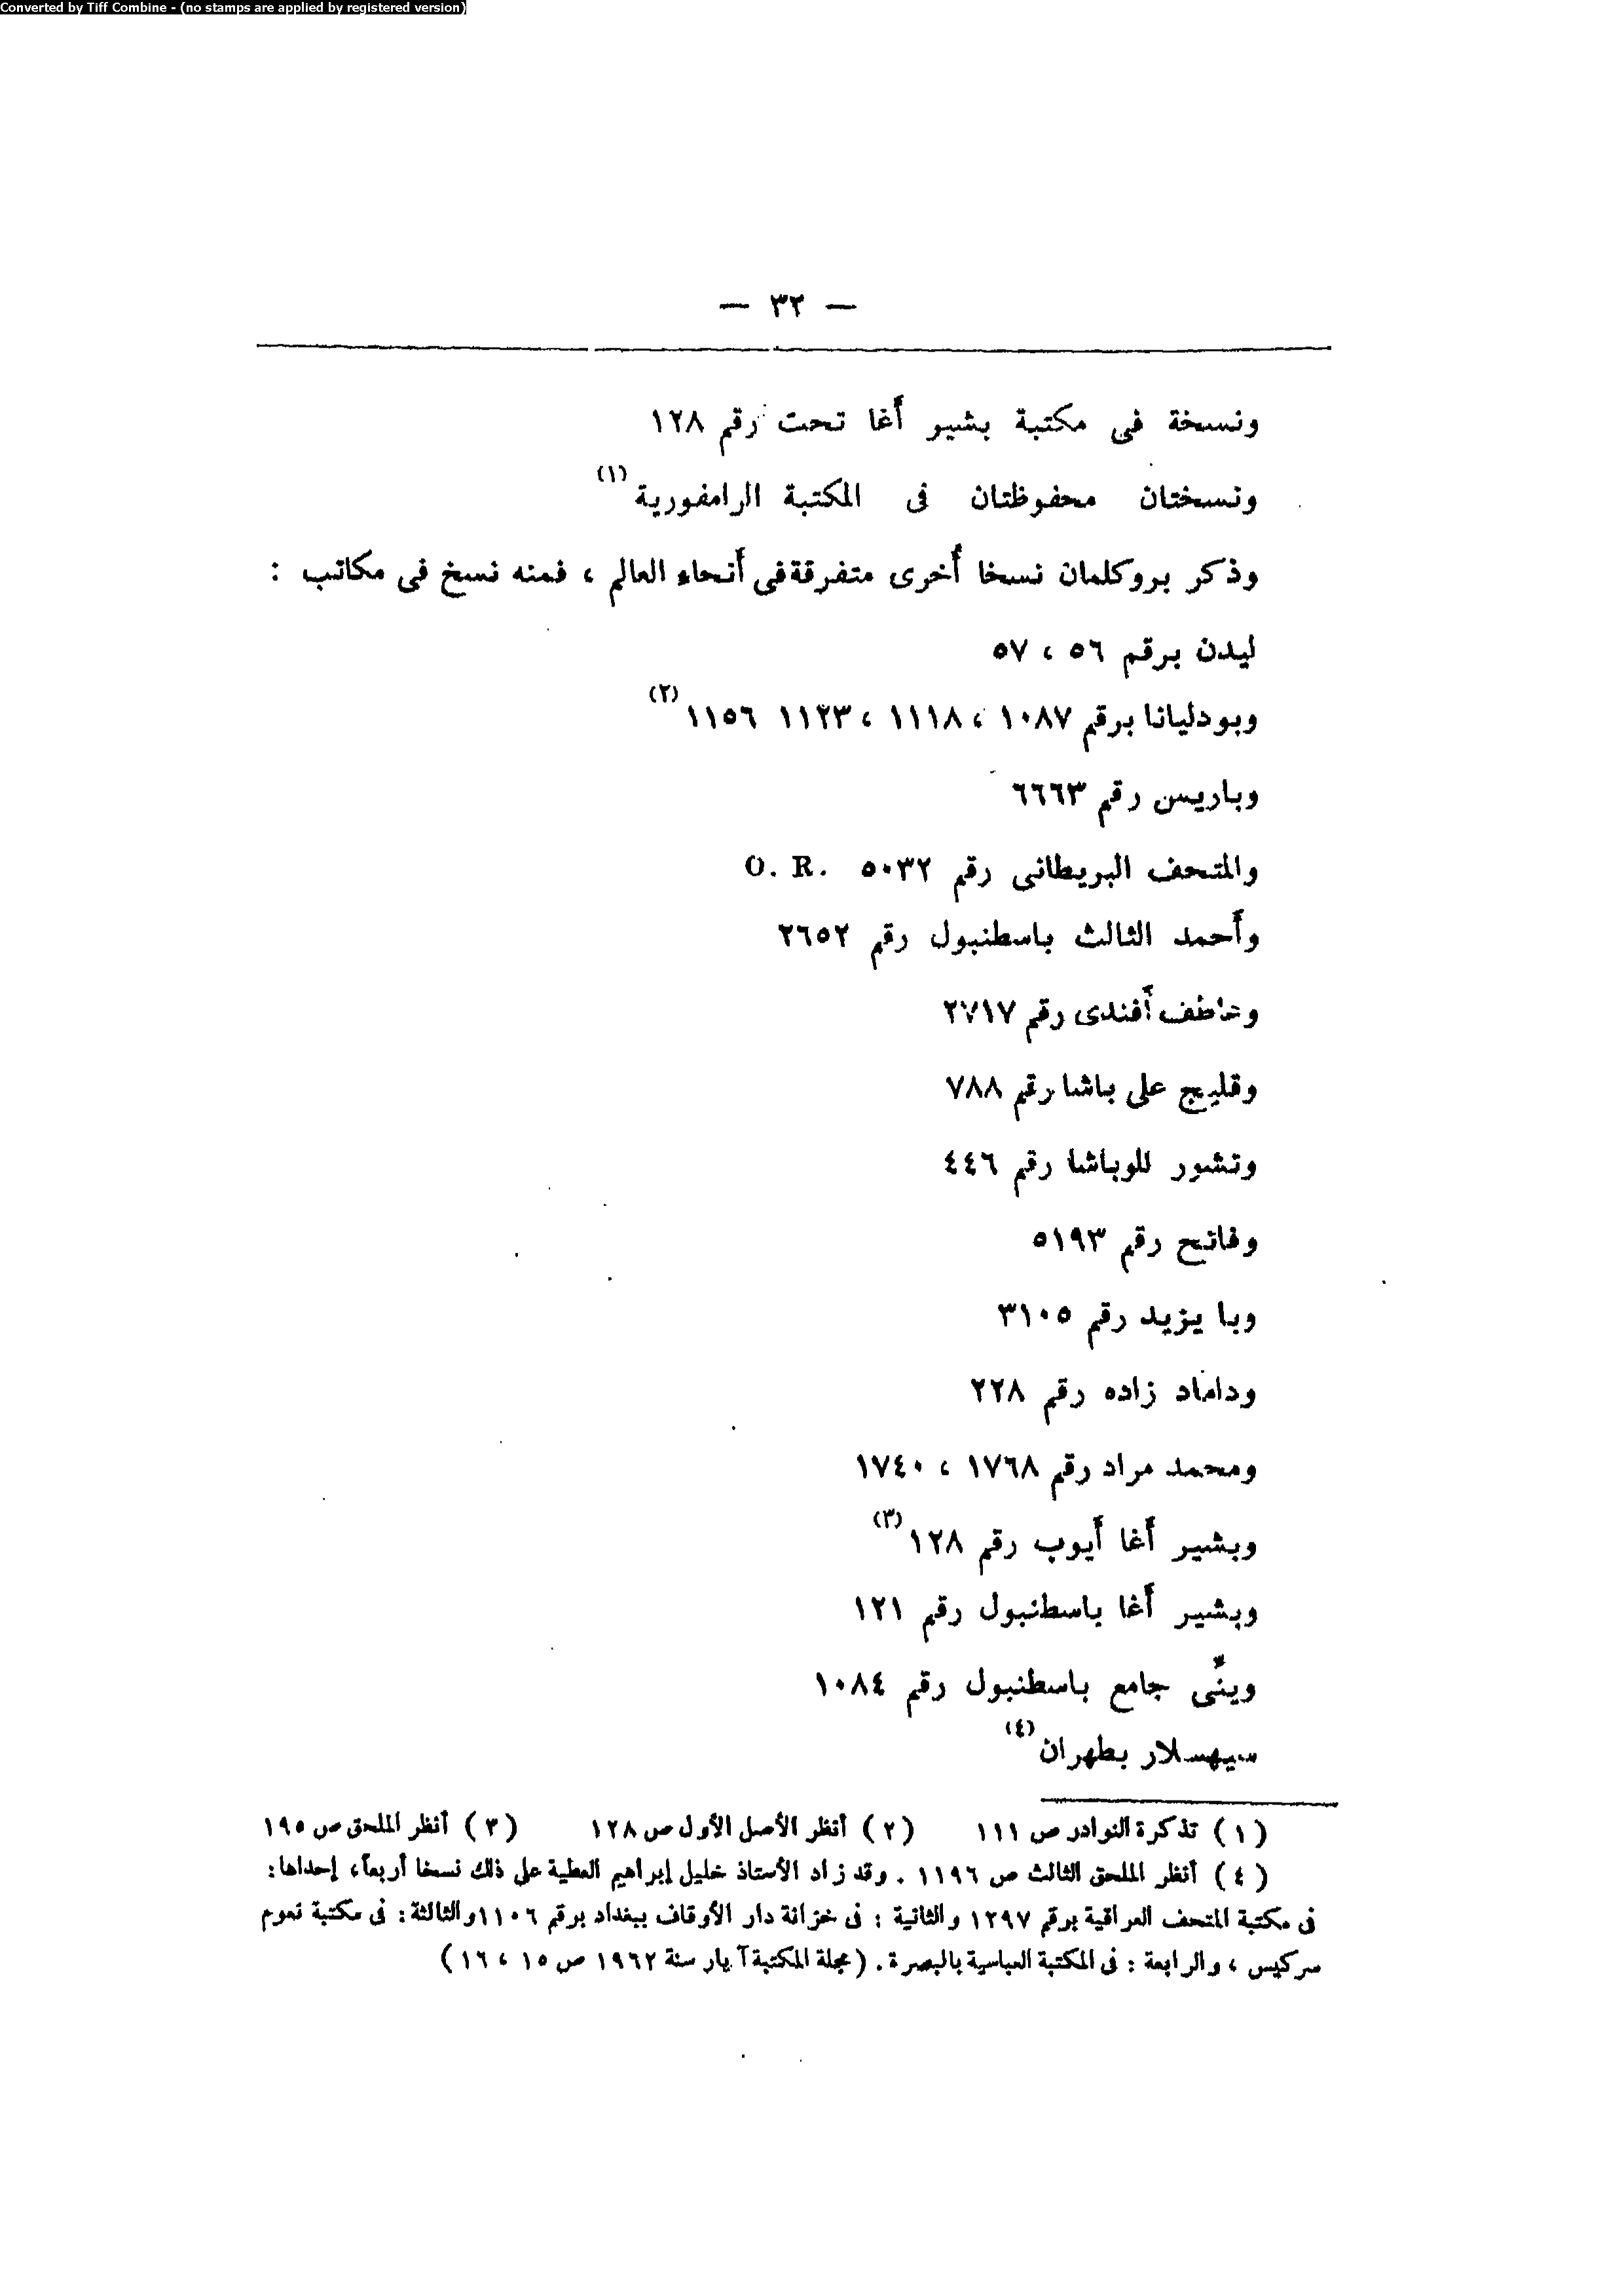 Converted by Tiff Combine - (no stamps are applied by registered version)
— ٣٢ —
ونسخة فى مكتبة بشير أغا تحت رقم ١٢٨
ونسختان محفوظتان فى المكتبة الرامفورية (١)
وذكر بروكلمان نسخا أخرى متفرقة فى أنحاء العالم ، فمنه نسخ فى مكاتب :
ليدن برقم ٥٦ ، ٥٧
وبودليانا برقم ١٠٨٧ ، ١١١٨ ، ١١٢٣ ١١٥٦ (٢)
وباريس رقم ٦٦٦٣
والمتحف البريطانى رقم ٥٠٣٢ O. R.
وأحمد الثالث باسطنبول رقم ٢٦٥٢
وعاطف أفندى رقم ٢٧١٧
وقليج على باشا رقم ٧٨٨
وتشور للوباشا رقم ٤٤٦
وفاتح رقم ٥١٩٣
وبا يزيد رقم ٣١٠٥
وداماد زاده رقم ٢٢٨
ومحمد مراد رقم ١٧٦٨ ، ١٧٤٠
وبشير أغا أيوب رقم ١٢٨ (٣)
وبشير أغا باسطنبول رقم ١٢١
وينّى جامع باسطنبول رقم ١٠٨٤
سيهسلار بطهران (٤)
(١) تذكرة النوادر ص ١١١ (٢) أنظر الأصل الأول ص ١٢٨ (٣) أنظر الملحق ص ١٩٥
(٤) أنظر الملحق الثالث ص ١١٩٦ . وقد زاد الأستاذ خليل إبراهيم العطية على ذلك نسخا أربعاً، إحداها:
فى مكتبة المتحف العراقية برقم ١٢٩٧ والثانية : فى خزانة دار الأوقاف ببغداد برقم ١١٠٦ والثالثة : فى مكتبة نعوم
سركيس ، والرابعة : فى المكتبة العباسية بالبصرة . (مجلة المكتبة آيار سنة ١٩٦٢ ص ١٥ ، ١٦)